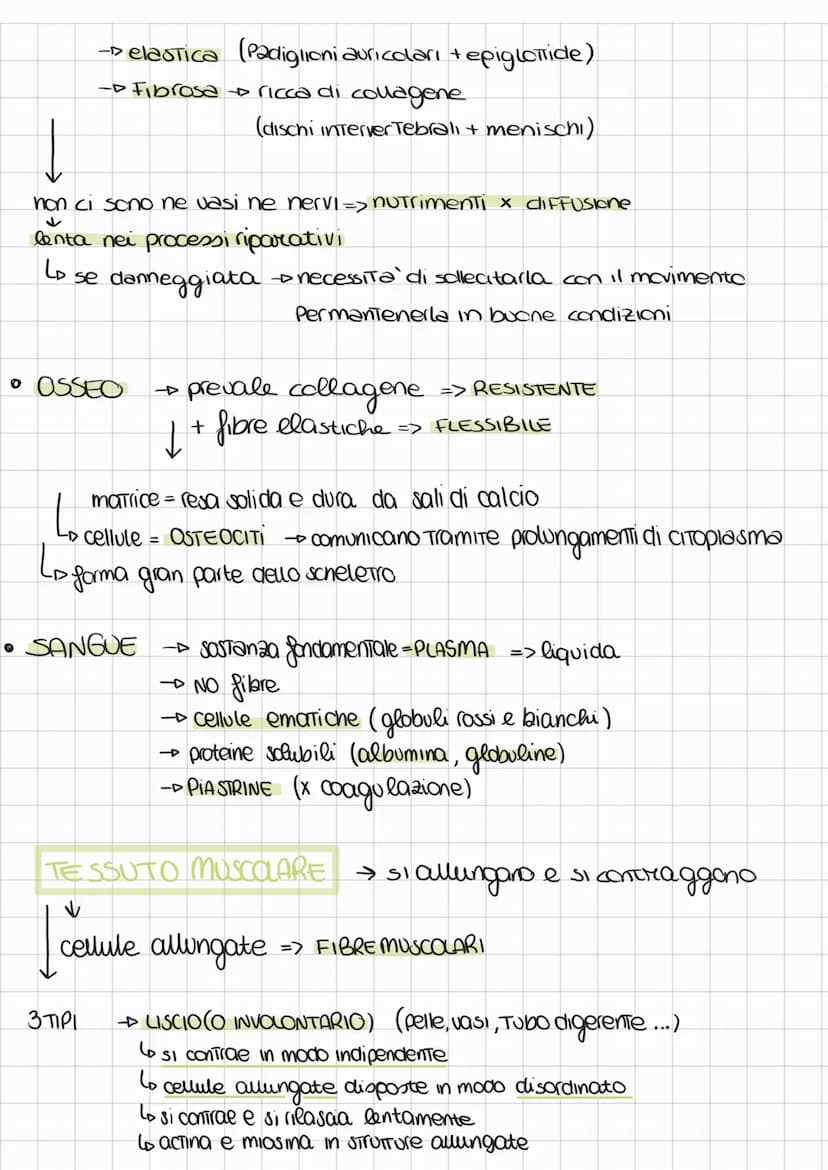 → elastica (Padiglioni auricolari + epiglottide)
→ Fibrosa → ricca di collagene
(dischi intervertebrali + menischi)
non ci sono ne vasi ne nervi => nutrimenti x diffusione
↓
lenta nei processi riparativi
↳ se danneggiata → necessità di sollecitarla con il movimento
Per mantenerla in buone condizioni
• OSSEO → prevale collagene => RESISTENTE
↓ + fibre elastiche => FLESSIBILE
matrice = resa solida e dura da sali di calcio
↳ cellule = OSTEOCITI → comunicano tramite prolungamenti di citoplasma
↳ forma gran parte dello scheletro
• SANGUE → sostanza fondamentale = PLASMA => liquida
→ NO fibre
→ cellule ematiche (globuli rossi e bianchi)
→ proteine solubili (albumina, globuline)
→ PIASTRINE (x coagulazione)
TESSUTO MUSCOLARE → si allungano e si contraggono
↓
cellule allungate => FIBRE MUSCOLARI
3 TIPI → LISCIO (O INVOLONTARIO) (pelle, vasi, tubo digerente ...)
↳ si contrae in modo indipendente
↳ cellule allungate disposte in modo disordinato
↳ si contrae e si rilascia lentamente
↳ actina e miosina in strutture allungate